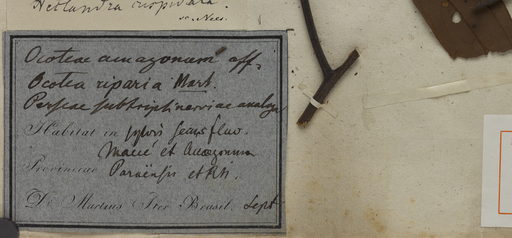 Nectandra cuspidata
Nees.
Ocoteae amazonum aff.
Ocotea riparia Mart.
Perseae subtriplinerviae analoga
Habitat in sylvis secus fluv.
et Amazonum
Provinciae Paraënsis et R.
D. Martius Iter Brasil. Sept